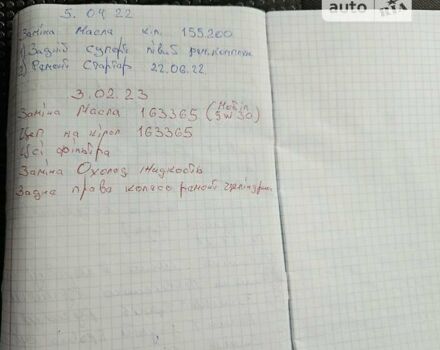 5.04.22
Заміна Масла кіл. 155.200
1) Задній супорт лівий
2) Ремонт Стартер 22.06.22
3.02.23
Заміна Масла 163365 (Мобіл 5W30)
на 163365
Всі фільтра
Заміна Охолод Жидкость
Задне права колесо ремонт
auto RIA